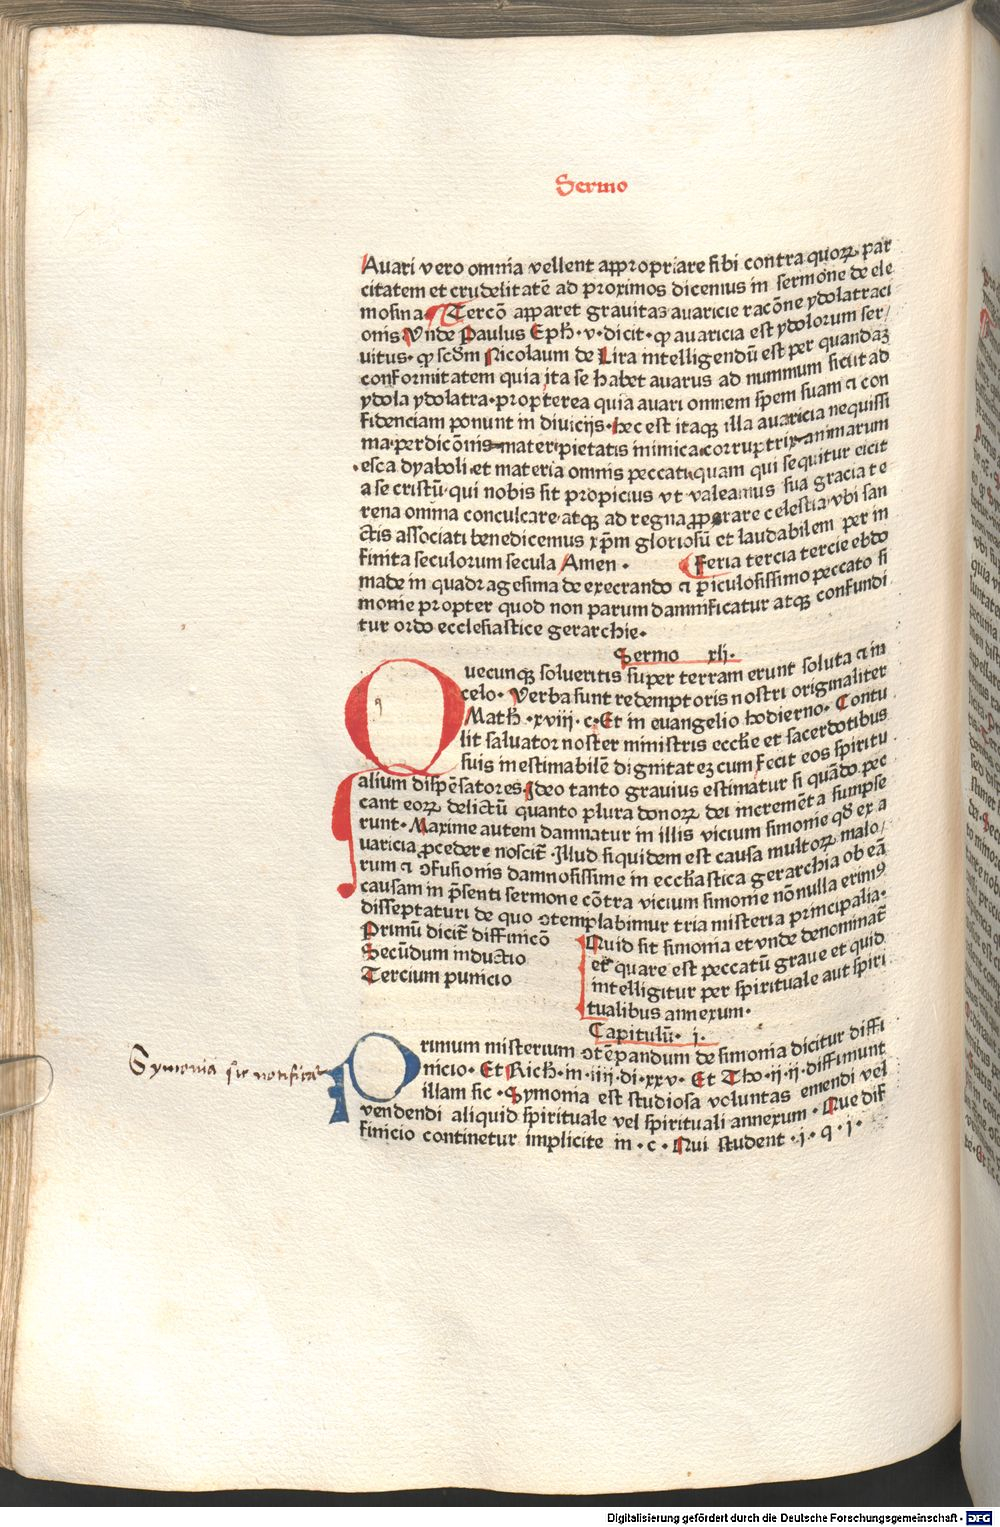 Sermo
Auari vero omnia vellent appropriare sibi contra quoꝝ par
citatem et crudelitatē ad proximos dicemus in sermone de ele
mosina. Tercō apparet grauitas auaricie racōne ydolatraci
onis Unde Paulus Eph̄·v·dicit·ꝙ auaricia est ydolorum ser/
vitus·ꝙ scd̄m Nicolaum de Lira intelligendū est per quandaꝫ
conformitatem quia ita se habet auarus ad nummum sicut ad
ydola ydolatra·propterea quia auari omnem spem suam ⁊ con
fidenciam ponunt in diuicijs·hec est itaqꝫ illa auaricia nequissi
ma·perdicōnis mater·pietatis inimica·corruptrix animarum
·esca dyaboli·et materia omnis peccati·quam qui sequitur eicit
a se cristū·qui nobis sit propicius vt valeamus sua gracia te
rena omnia conculcare·atqꝫ ad regna ꝓꝑerare celestia·vbi san
ctis associati benedicemus xp̄m gloriosū et laudabilem per in
finita seculorum secula Amen· Feria tercia tercie ebdo
made in quadragesima de execrando ⁊ ꝑiculosissimo peccato si
monie propter quod non parum damnificatur atqꝫ confundi
tur ordo ecclesiastice gerarchie·
Sermo xlj·
Quecunqꝫ solueritis super terram erunt soluta ⁊ in
celo· Verba sunt redemptoris nostri originaliter
Math̄·xviij·c·Et in euangelio hodierno· Contu
lit saluator noster ministris eccƚie et sacerdotibus
suis inestimabilē dignitateꝫ cum fecit eos spiritu
alium dispēsatores·Ideo tanto grauius estimatur si quādo pec
cant eoꝝ delictū quanto plura donoꝝ dei incremēta sumpse
runt· Maxime autem damnatur in illis vicium simonie qd̄ ex a
varicia ꝓcedere noscit̄·Illud siquidem est causa multoꝝ malo/
rum ⁊ ꝯfusionis damnosissime in eccƚiastica gerarchia ob eā
causam in p̄senti sermone cōtra vicium simonie nōnulla erimꝰ
disseptaturi de quo ꝯtemplabimur tria misteria principalia·
Primū dicit̄ diffinicō
Secūdum inductio
Tercium punicio
Quid sit simonia et vnde denominat̄
et quare est peccatū graue et quid
intelligitur per spirituale aut spiri
tualibus annexum·
Capitulū· j·
Primum misterium ꝯtēpandum de simonia dicitur diffi
nicio· Et Rich̄·in·iiij·di·xxv· Et Tho·ij·ij·diffiniunt
illam sic·Symonia est studiosa voluntas emendi vel
vendendi aliquid spirituale vel spirituali annexum· Que dif
finicio continetur implicite in·c·Qui student·j·q·j·
Symonia sic notificat̄
Digitalisierung gefördert durch die Deutsche Forschungsgemeinschaft - DFG